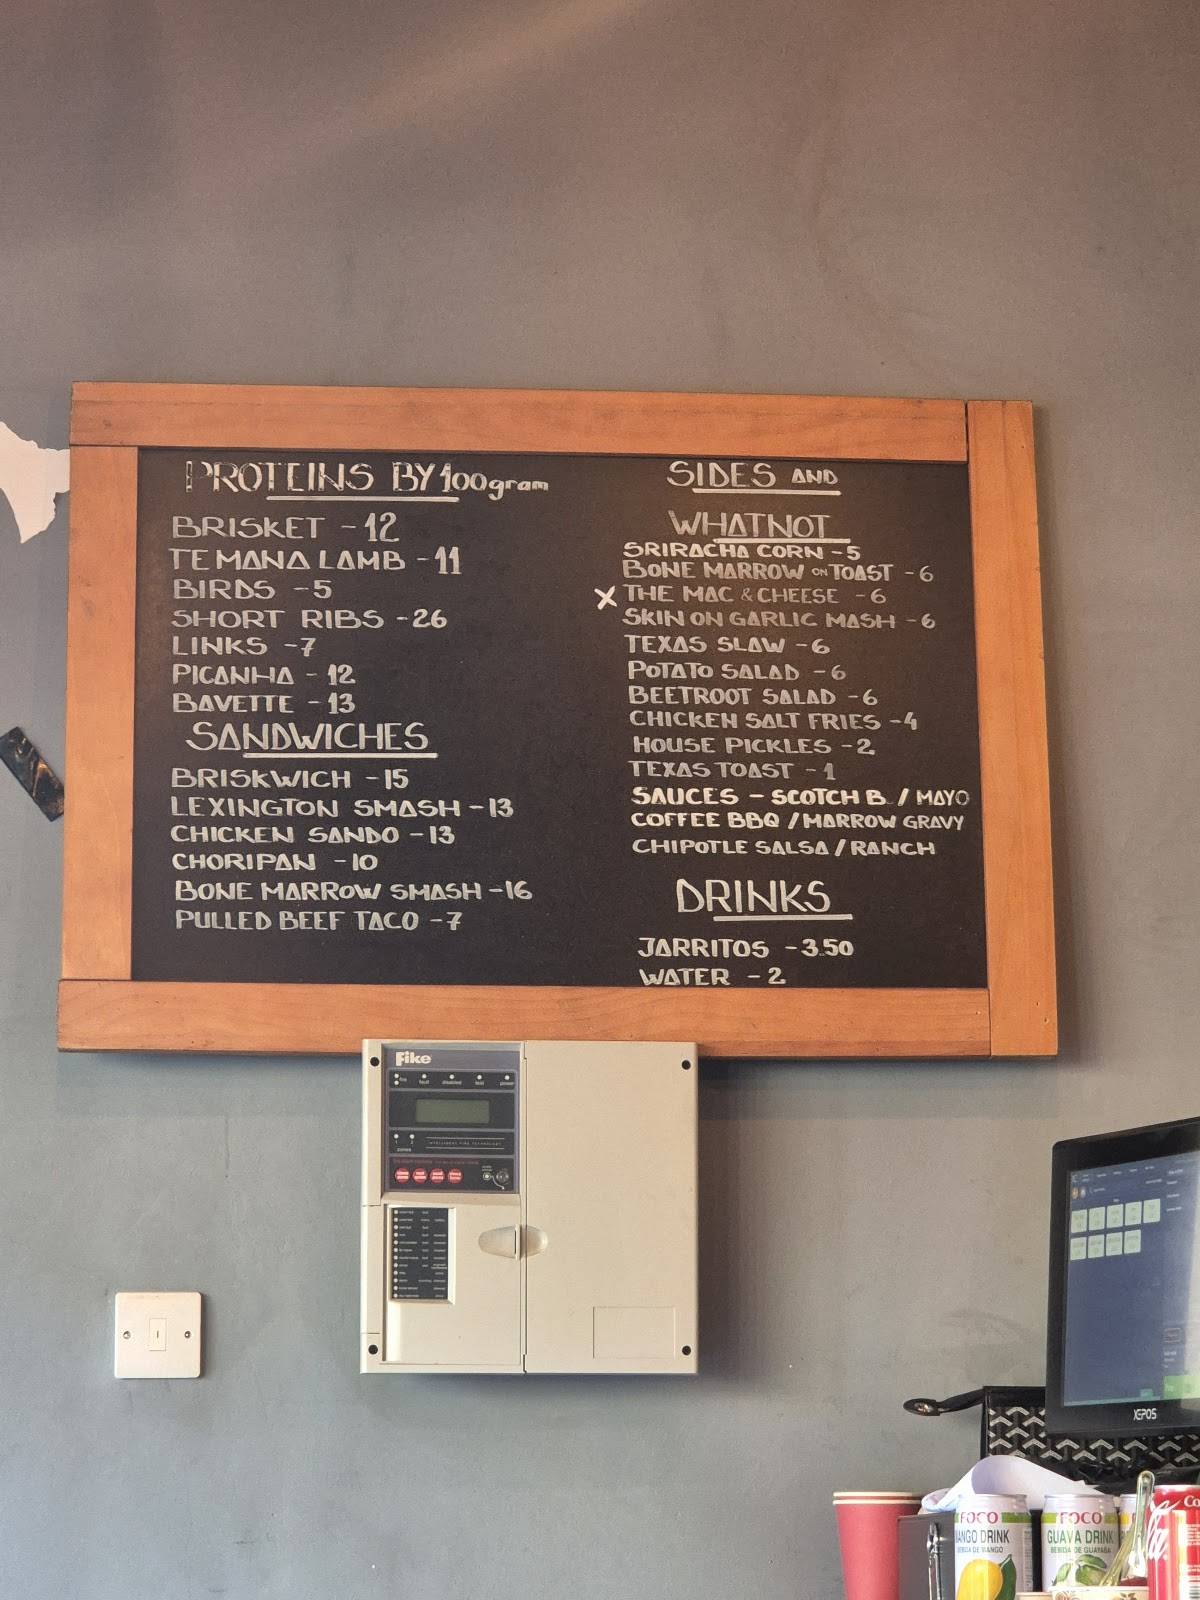 PROTEINS BY 100gram
BRISKET - 12
TE MANA LAMB - 11
BIRDS - 5
SHORT RIBS - 26
LINKS - 7
PICANHA - 12
BAVETTE - 13
SANDWICHES
BRISKWICH - 15
LEXINGTON SMASH - 13
CHICKEN SANDO - 13
CHORIPAN - 10
BONE MARROW SMASH - 16
PULLED BEEF TACO - 7
SIDES AND
WHATNOT
SRIRACHA CORN - 5
BONE MARROW ON TOAST - 6
X THE MAC & CHEESE - 6
SKIN ON GARLIC MASH - 6
TEXAS SLAW - 6
POTATO SALAD - 6
BEETROOT SALAD - 6
CHICKEN SALT FRIES - 4
HOUSE PICKLES - 2
TEXAS TOAST - 1
SAUCES - SCOTCH B. / MAYO
COFFEE BBQ / MARROW GRAVY
CHIPOTLE SALSA / RANCH
DRINKS
JARRITOS - 3.50
WATER - 2
Fike
fire fault disabled test power
zones
XEPOS
FOCO
MANGO DRINK
BEBIDA DE MANGO
FOCO
GUAVA DRINK
BEBIDA DE GUAYABA
Co